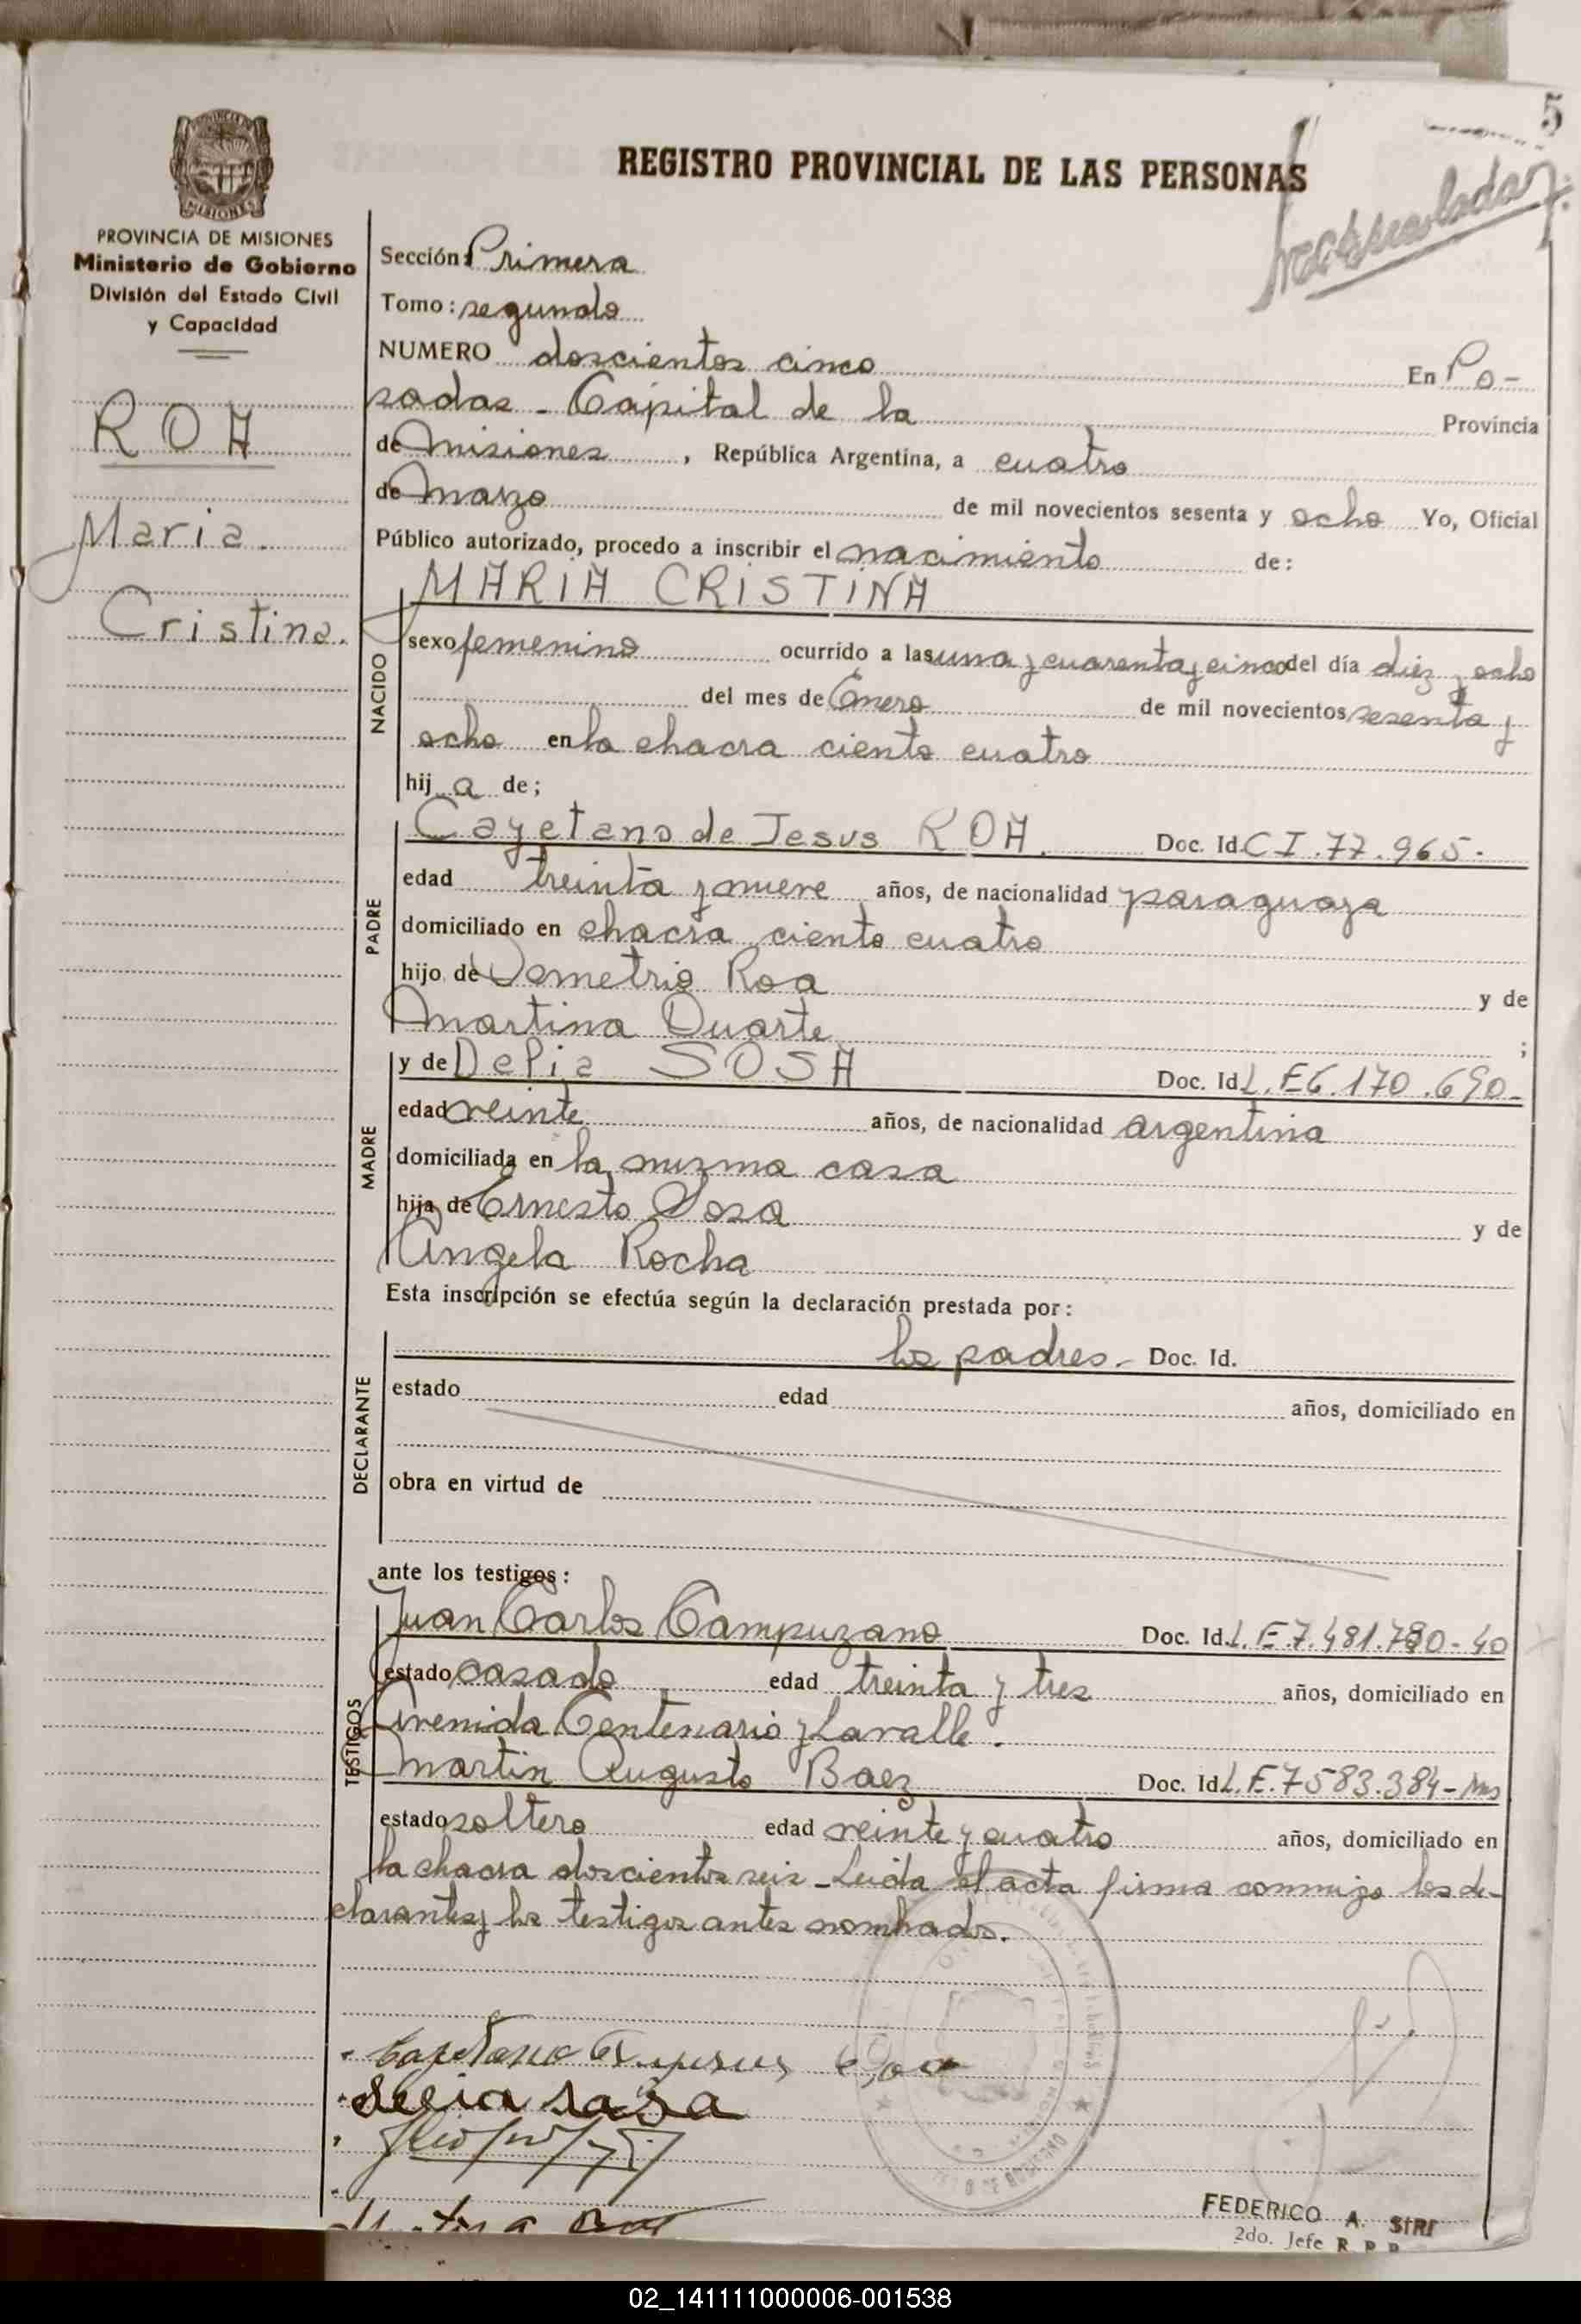 5
REGISTRO PROVINCIAL DE LAS PERSONAS
PROVINCIA DE MISIONES
Ministerio de Gobierno
División del Estado Civil
y Capacidad
ROA
Maria
Cristina.
Sección: Primera
Tomo: segundo
NUMERO doscientos cinco En Po-
sadas - Capital de la Provincia
de Misiones, República Argentina, a cuatro
de Marzo de mil novecientos sesenta y ocho Yo, Oficial
Público autorizado, procedo a inscribir el nacimiento de:
MARIA CRISTINA
NACIDO
sexo femenino ocurrido a las una y cuarenta y cinco del día diez y ocho
del mes de Enero de mil novecientos sesenta y
ocho en la chacra ciento cuatro
hij a de;
PADRE
Cayetano de Jesus ROA. Doc. Id. C I. 77.965.
edad treinta y nueve años, de nacionalidad paraguaya
domiciliado en chacra ciento cuatro
hijo de Demetrio Roa y de
Martina Duarte ;
MADRE
y de Delia SOSA Doc. Id. L. E 6.170.690-
edad veinte años, de nacionalidad argentina
domiciliada en la misma casa
hija de Ernesto Sosa y de
Angela Rocha
Esta inscripción se efectúa según la declaración prestada por:
DECLARANTE
los padres.- Doc. Id.
estado edad años, domiciliado en
obra en virtud de
ante los testigos:
TESTIGOS
Juan Carlos Campuzano Doc. Id. L. E 7.481.780-40
estado casado edad treinta y tres años, domiciliado en
Avenida Centenario y Lavalle.
Martin Augusto Baez Doc. Id. L. E. 7583.384-
estado soltero edad veinte y cuatro años, domiciliado en
la chacra doscientos seis - Leida el acta firma conmigo los de-
clarantes y los testigos antes nombrados.
Cayetano de jesus Roa
Delia sosa
FEDERICO A. SIRI
2do. Jefe R. P. P.
02_141111000006-001538